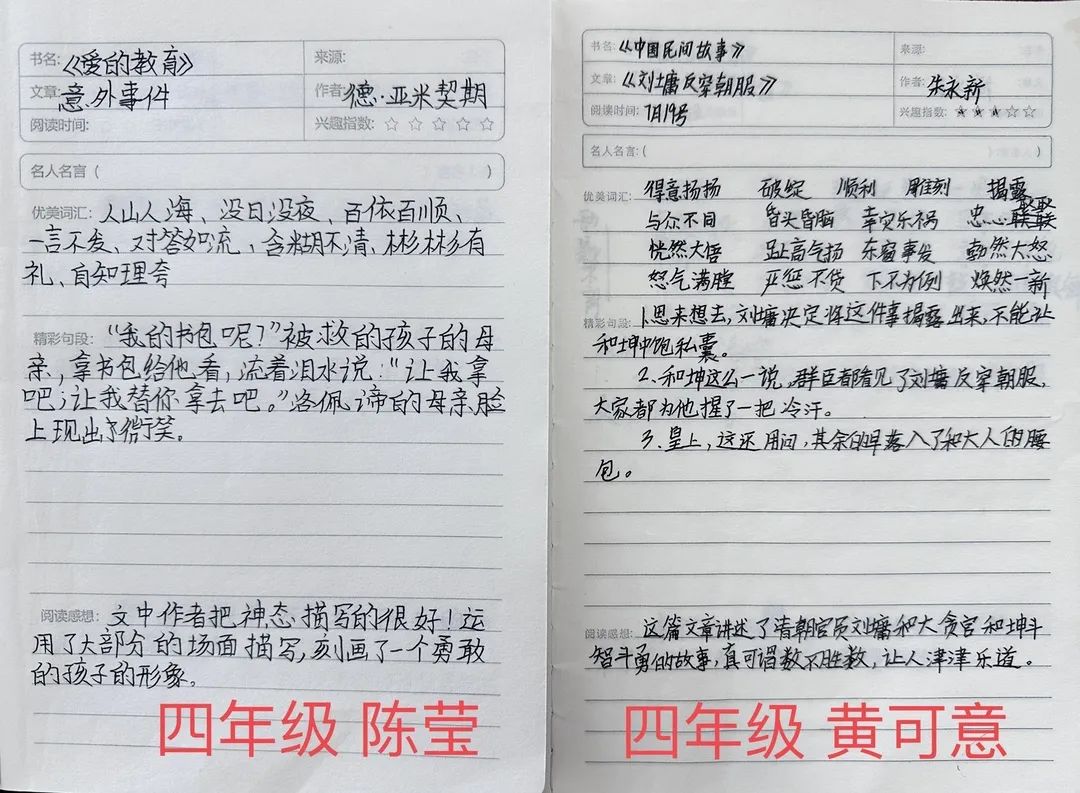 书名:《爱的教育》
来源:
文章:意外事件
作者:德·亚米契期
阅读时间:
兴趣指数:☆☆☆☆☆
名人名言( )
优美词汇:人山人海、没日没夜、百依百顺、
一言不发、对答如流、含糊不清、彬彬有
礼、自知理夸
精彩句段:“我的书包呢?”被救的孩子的母
亲,拿书包给他看,流着泪水说:“让我拿
吧;让我替你拿去吧。”洛佩谛的母亲脸
上现出了微笑。
阅读感想:文中作者把神态描写的很好!运
用了大部分的场面描写,刻画了一个勇敢
的孩子的形象。
四年级 陈莹
书名:《中国民间故事》
来源:
文章:《刘墉反穿朝服》
作者:朱永新
阅读时间:7月19号
兴趣指数:★★★☆☆
名人名言:( )
优美词汇:得意扬扬 破绽 顺利 雕刻 揭露
与众不同 昏头昏脑 幸灾乐祸 忠心耿耿
恍然大悟 趾高气扬 东窗事发 勃然大怒
怒气满膛 严惩不贷 下不为例 焕然一新
精彩句段:1.思来想去,刘墉决定将这件事揭露出来,不能让
和坤中饱私囊。
2.和坤这么一说,群臣都看见了刘墉反穿朝服,
大家都为他握了一把冷汗。
3.皇上,这还用问,其余的早落入了和大人的腰
包。
阅读感想:这篇文章讲述了清朝官员刘墉和大贪官和坤斗
智斗勇的故事,真可谓数不胜数,让人津津乐道。
四年级 黄可意